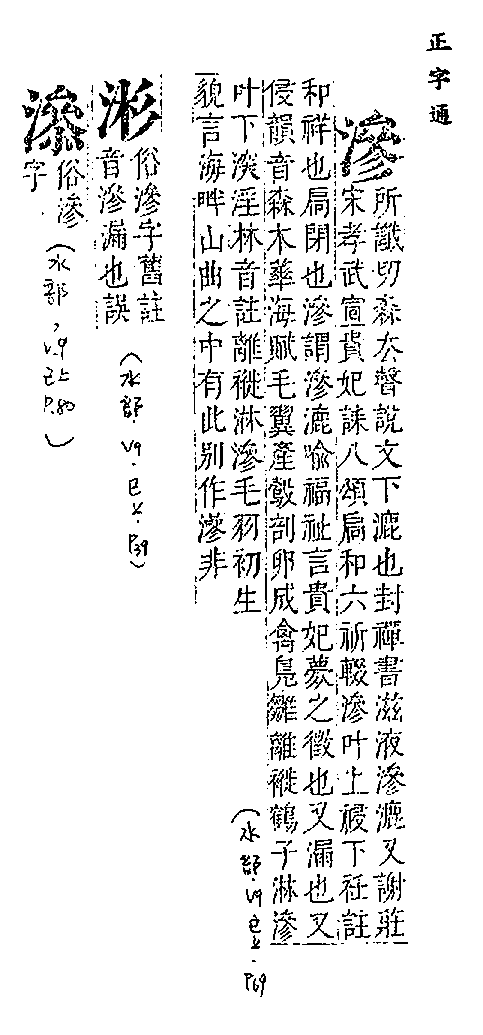 正字通
滲
所讖切森去聲說文下漉也封禪書滋液滲漉又謝莊
宋孝武宣貴妃誄八頌扃和六祈輟滲叶上祲下祍註
和祥也扃閉也滲謂滲漉喻福祉言貴妃夢之徵也又漏也又
侵韻音森木華海賦毛翼產鷇剖卵成禽鳧雛離褷鶴子淋滲
叶下淡淫林音註離褷淋滲毛羽初生
貌言海畔山曲之中有此別作滲非
(水部.V9.巳上.P69
俗滲字舊註
音滲漏也誤
(水部.V9.巳上.P39)
俗滲
字
(水部,V9巳上P.80)